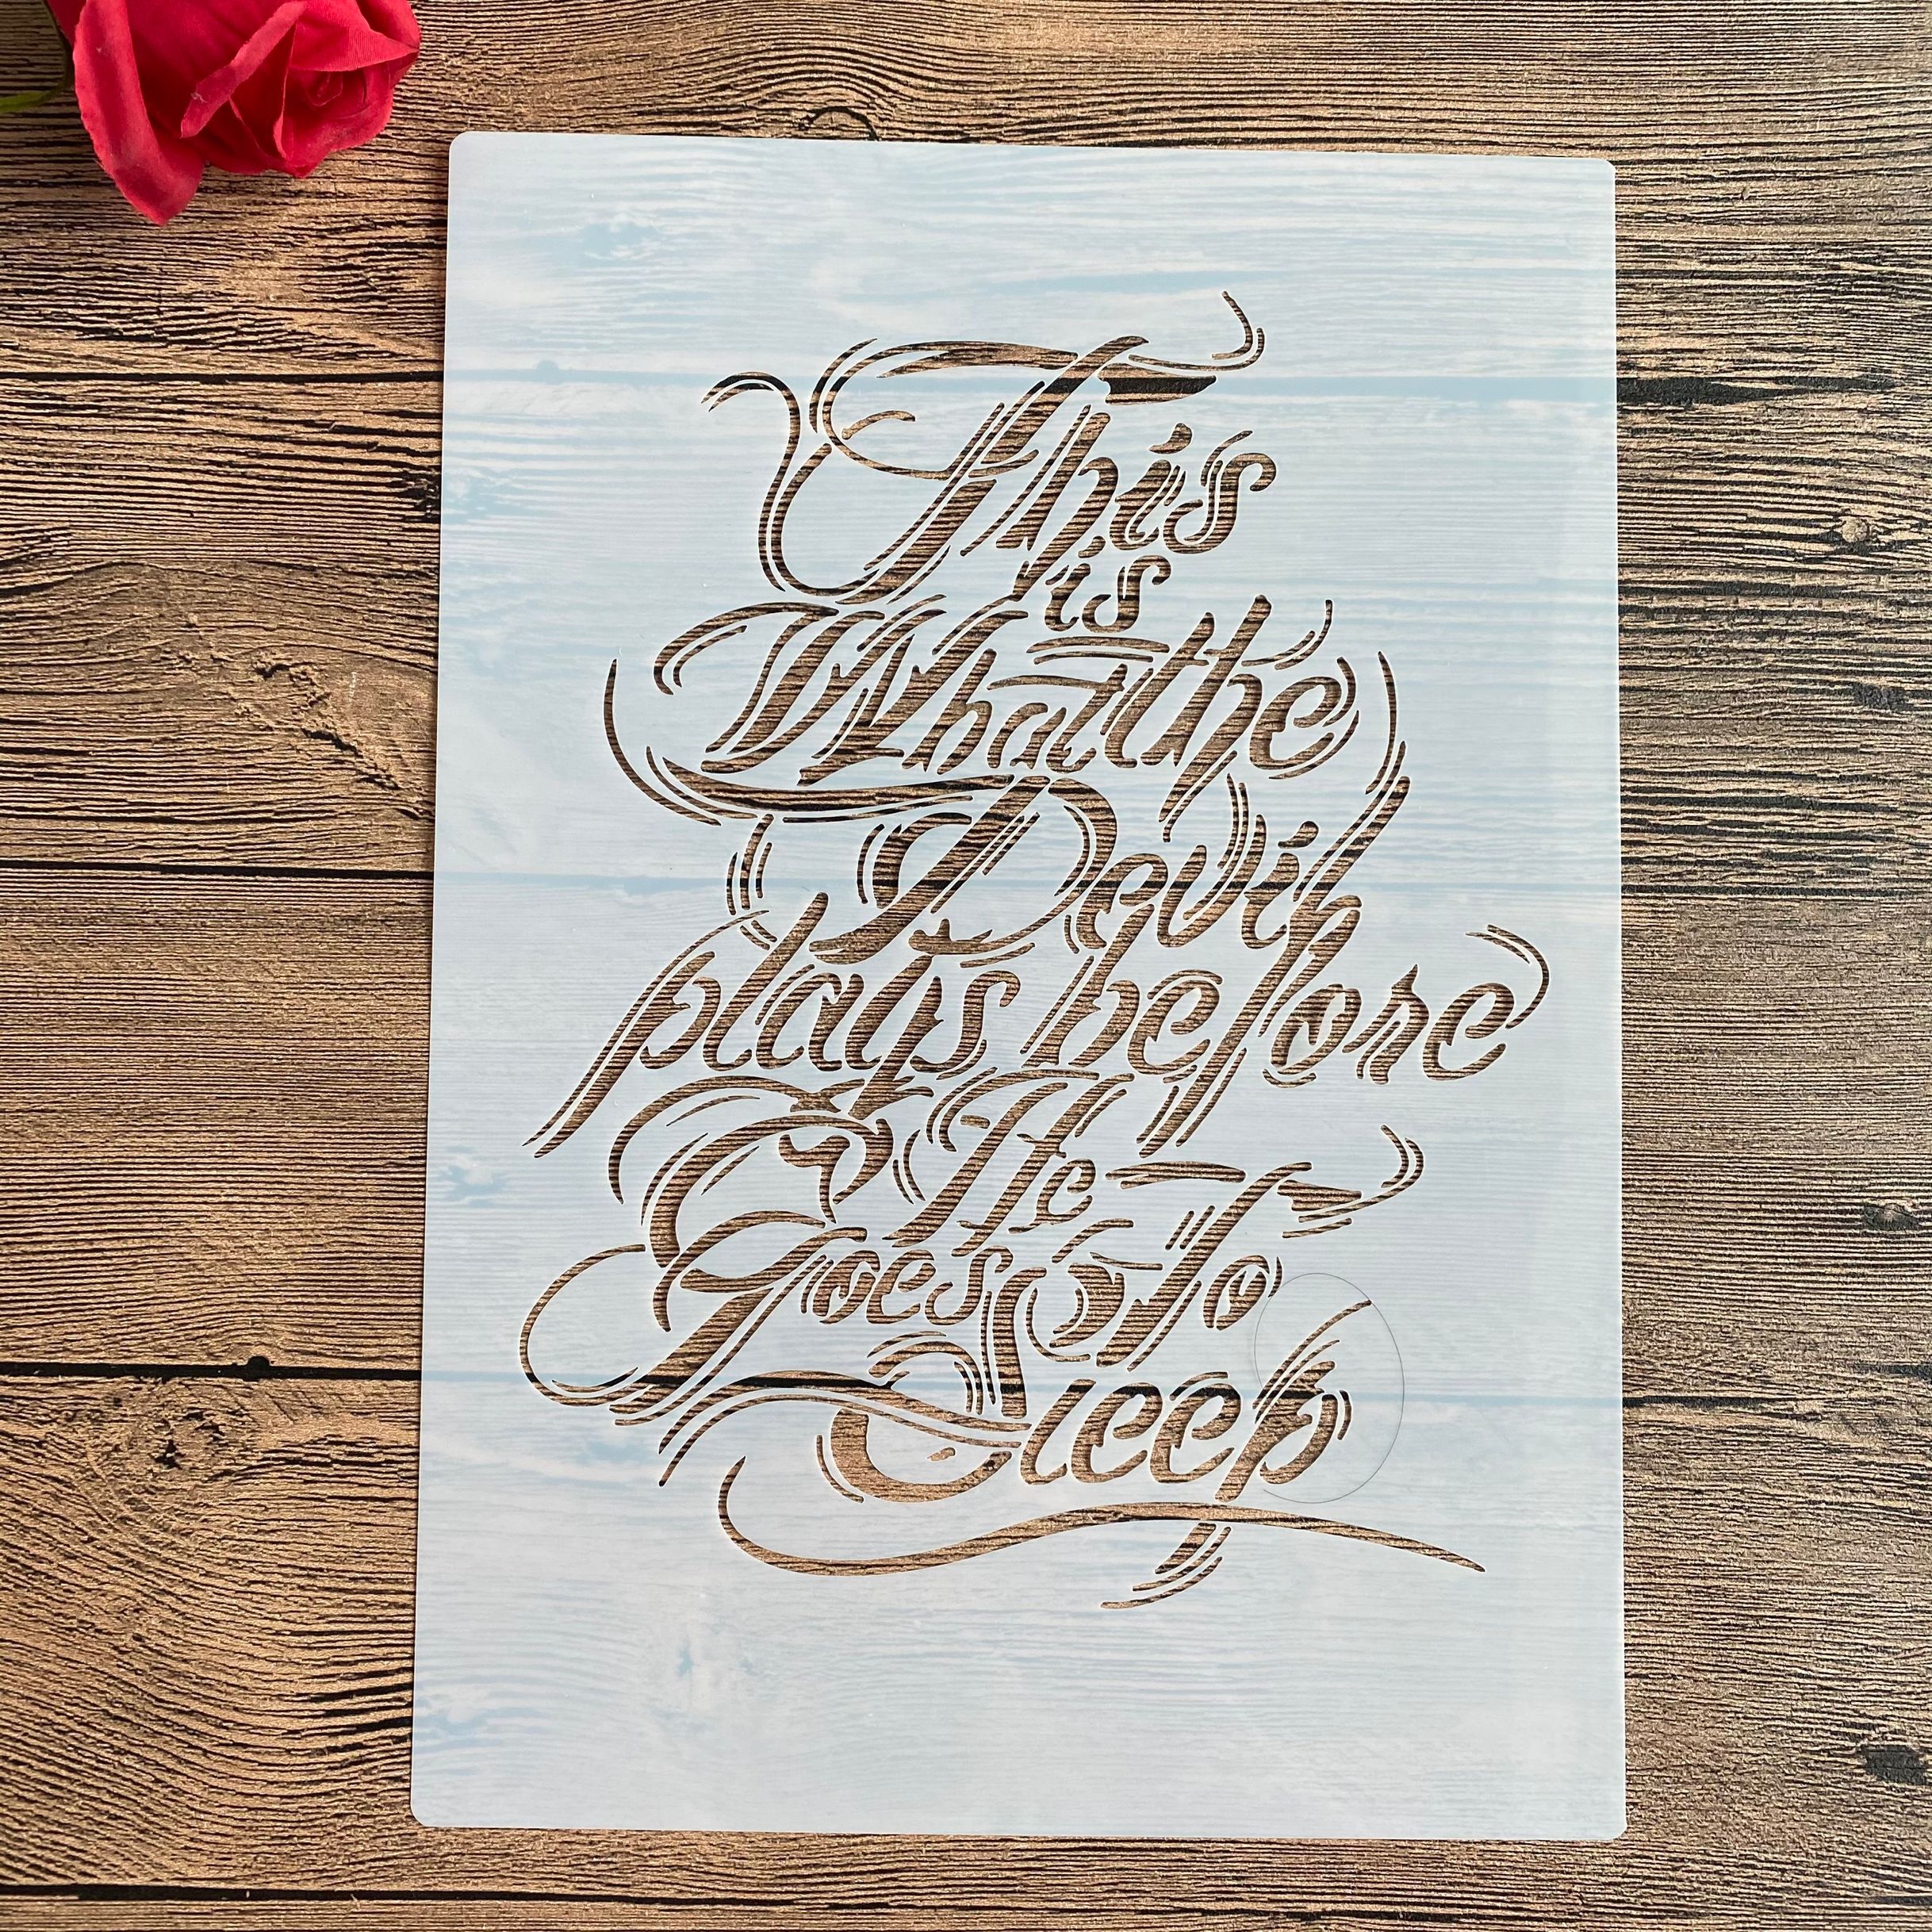 This
is
What the
Devil
plays before
He
Goes To
Sleep